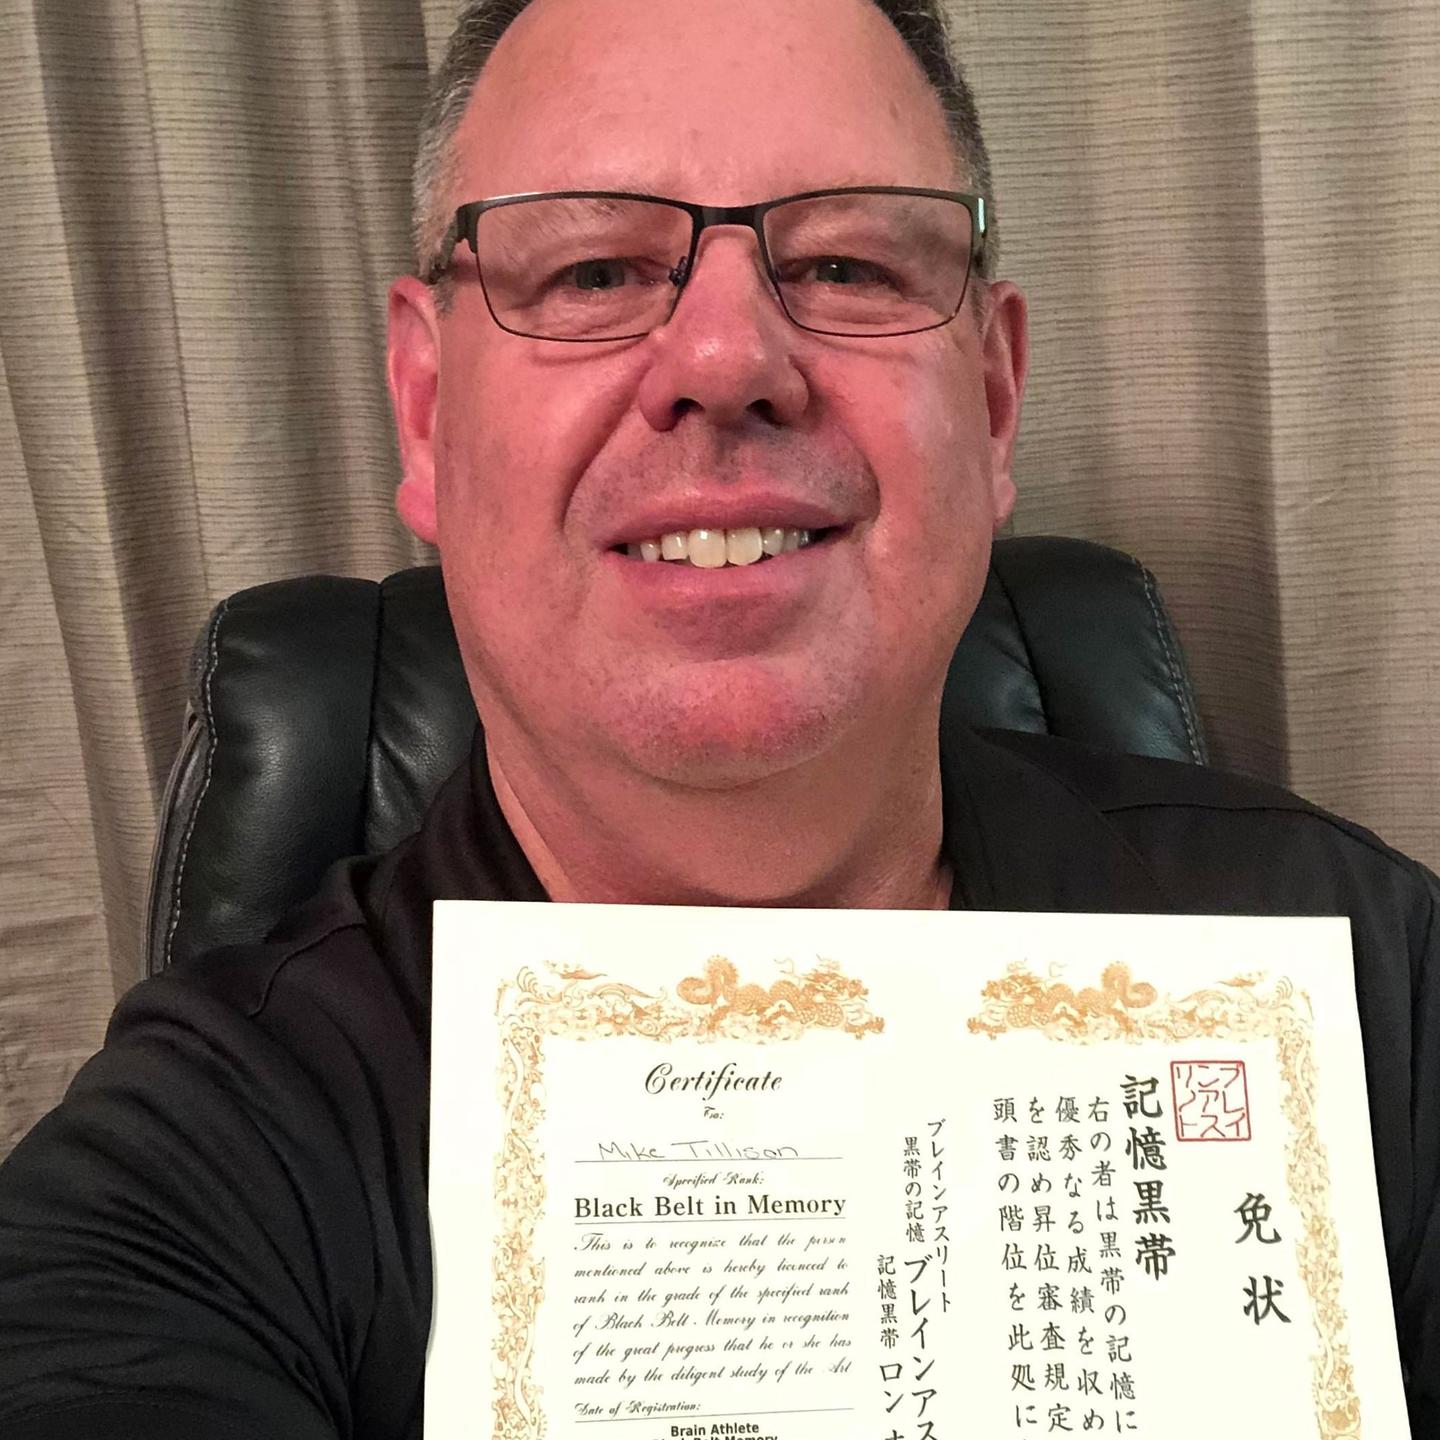 Certificate
To:
Mike Tillison
Specified Rank:
Black Belt in Memory
This is to recognize that the person
mentioned above is hereby licenced to
rank in the grade of the specified rank
of Black Belt Memory in recognition
of the great progress that he or she has
made by the diligent study of the Art
Date of Registration:
Brain Athlete
Black Belt Memory
免状
ブレイ
ンアス
リート
記憶黒帯
右の者は黒帯の記憶に
優秀なる成績を収め
を認め昇位審査規定
頭書の階位を此処に
ブレインアスリート
黒帯の記憶
ブレインアス
記憶黒帯
ロン